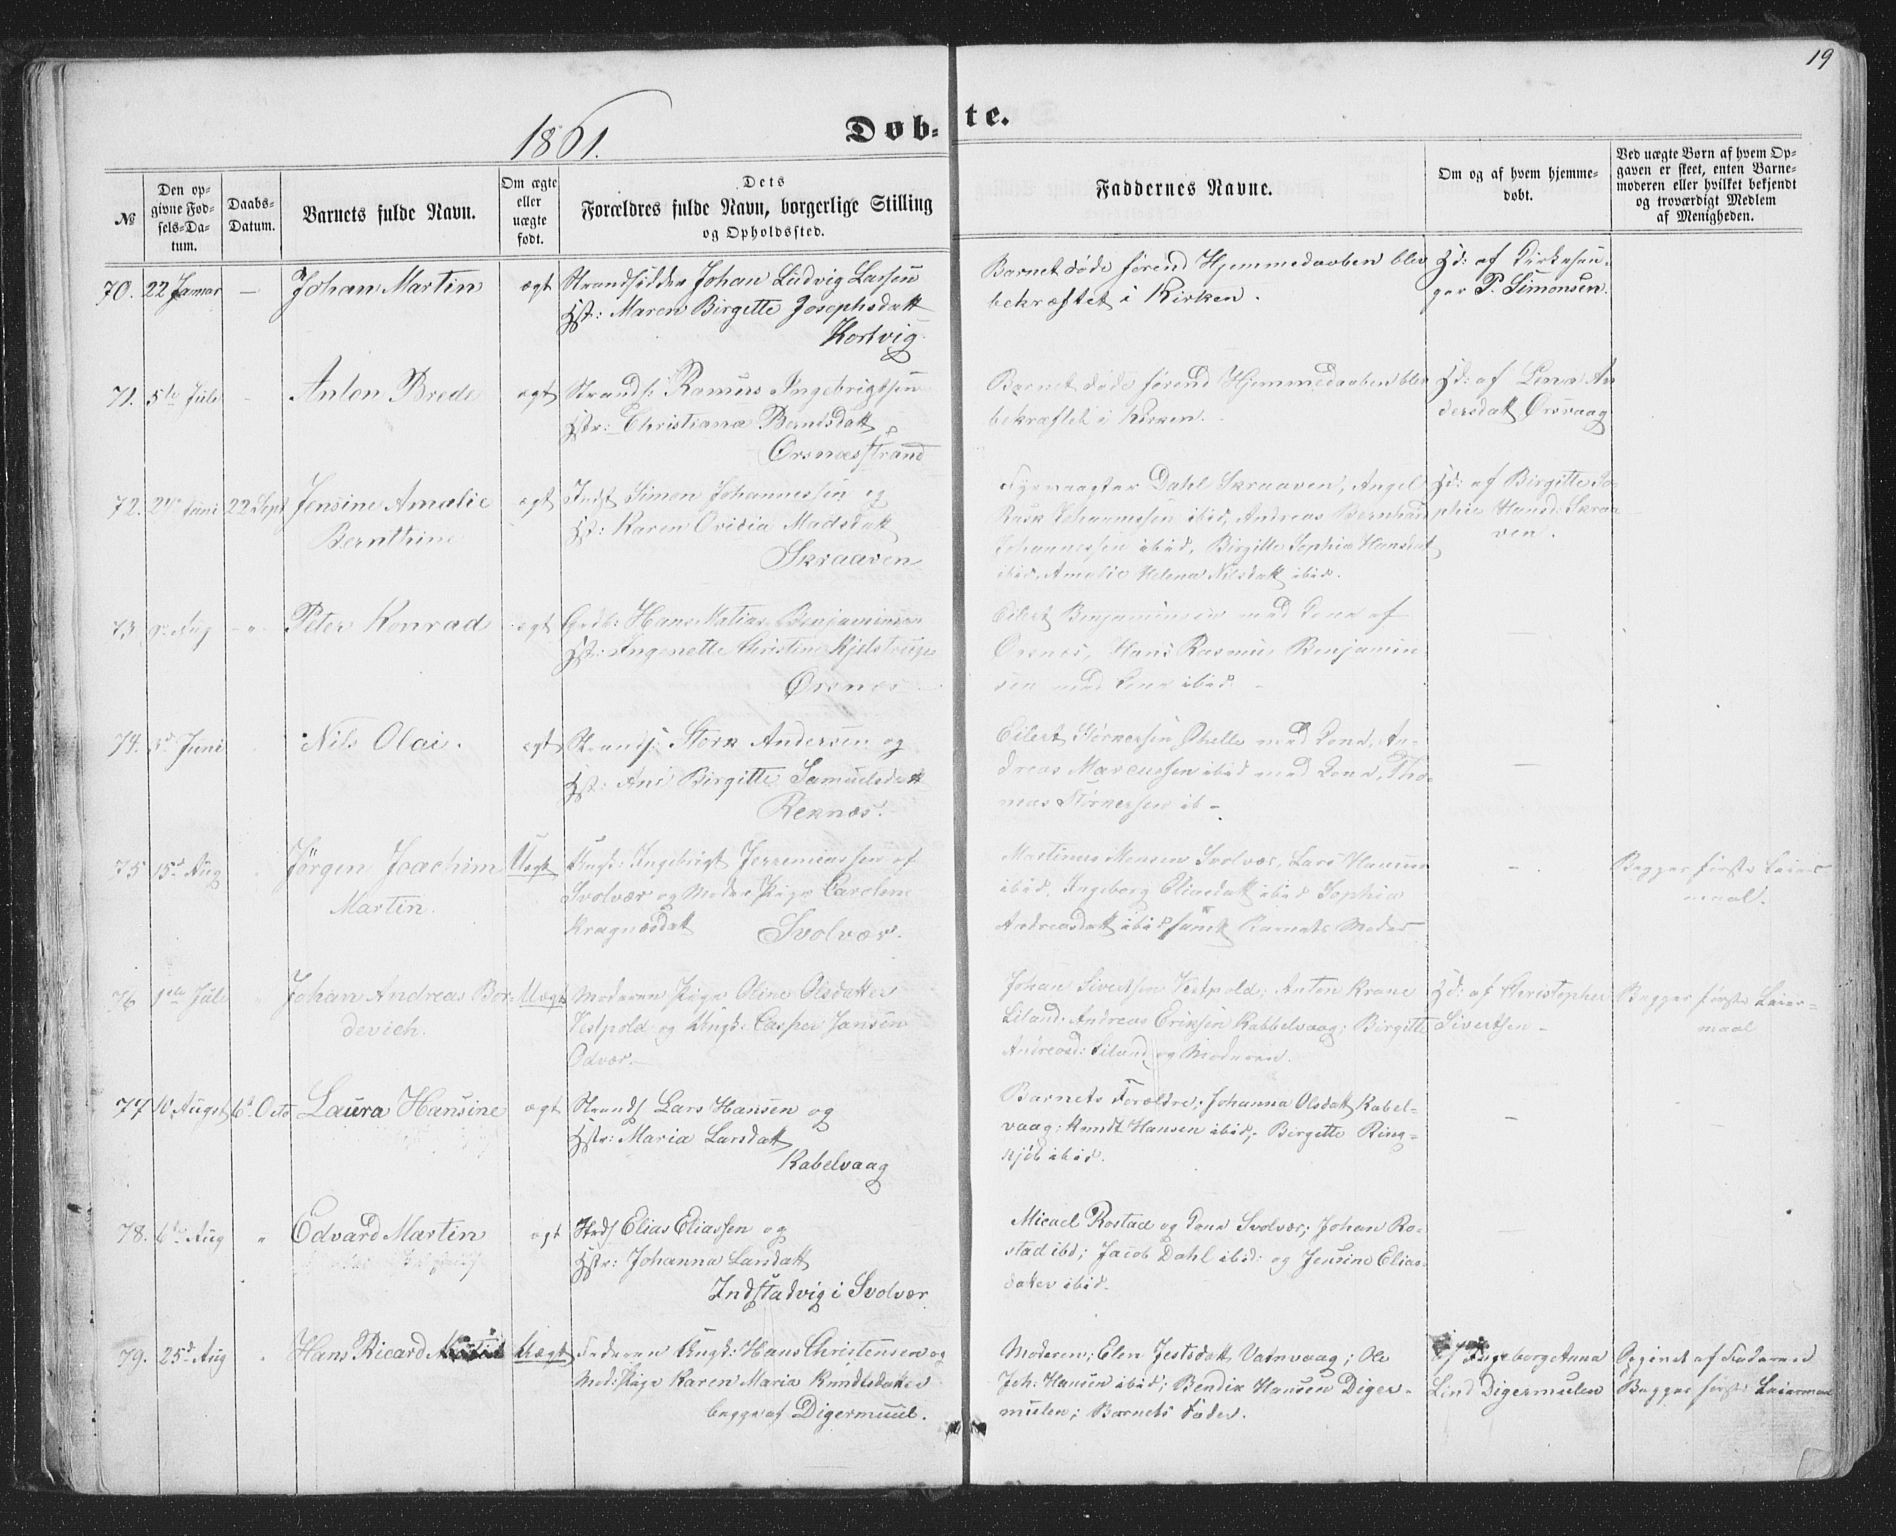 19
1861.
Døb- te.
№
Den opgivne Fødsels-Datum.
Daabs-Datum.
Barnets fulde Navn.
Om ægte eller uægte født.
Dets Forældres fulde Navn, borgerlige Stilling og Opholdssted.
Faddernes Navne.
Om og af hvem hjemmedøbt.
Ved uægte Børn af hvem Opgaven er skeet, enten Barnemoderen eller hvilket bekjendt og troværdigt Medlem af Menigheden.
70. 22 Januar — Johan Martin ægt Strandsidder Johan Ludvig Larsen
Hstr: Maren Birgitte Josephsdatt
Barnet døde førend Hjemmedaaben blev
bekræftet i Kirken.
Hd: af Kirkesan-
ger P. Simonsen.
71. 5te Juli Anton Brede ægt Strands: Rasmus Ingebrigtsen
Hstr: Christiana Berntsdatt
Ørsnæsstrand
Barnet døde førend Hjemmedaaben blev
bekræftet i Kirken.
Hd: af Lena An-
dersdatt Ørsvaag
72. Juni 22 Sept Jensine Amalie ægt Indst Simon Johannessen og
Bernthine
Hst: Karen Ovidia Madsdatt
Skraaven
Fyrvaagter Dahl Skraaven, Angel
Rask Johannessen ibid, Andreas Bernhard
Johannessen ibid, Birgitte Sophia Hansdat
ibid. Amalie Helena Nilsdatt ibid.
Hd: af Birgitte So-
phie Hansd: Skraa-
ven.
73. Aug Peter Konrad ægt Hans Matias Benjaminsen
Hst: Ingenette Christine Kjelstrup
Ørsnes
Eilert Benjaminsen med Kone af
Ørsnes, Hans Rasmus Benjamin-
sen med Kone ibid.
74. Juni Nils Olai. ægt Strands: Stork Andersen og
Hst: Ane Birgitte Samuelsdatt
Reknæs.
Eilert med Kone, An-
dreas Marcussen ibid med Kone, Tho-
mas ib —
75 15d Aug Jørgen Joachim Uægt Ungk: Ingebrigt Jerremiassen af
Martin.
Svolvær og Moder Pige Carolene
Kragnæsdatt Svolvær.
Martinus Monsen Svolvær, Lars Hansen
ibid. Ingeborg Eliasdatt ibid Sophia
Andreasdatt ibid samt Barnets Moder
Begges første Leier-
maal.
76 1ste Juli Johan Andreas Bor- Uægt Moderen Pige Oline Olsdatter
devich.
Vestpold og Ungk: Casper Jansen
Odvær —
Johan Sivertsen Vestpold. Anton Krane
Liland. Andreas Eriksen Kabbelvaag; Birgitte
Andreasd: Liland og Moderen.
Hd: af Christopher
Sivertsen —
Begges første Leier-
maal
77 10 August 6d Octo Laura Hansine ægt Strands Lars Hansen og
Hstr: Maria Larsdatt
Kabelvaag
Barnets Forældre; Johanna Olsdatt Kabel-
vaag; Knudt Hansen ibid; Birgitte Ring-
kjøb ibid.
78. 6te Aug " Edvard Martin ægt Strds Elias Eliassen og
Hstr: Johanna Larsdatt
Indstadvig i Svolvær
Micael Rostad og Kone Svolvær; Johan Ro-
stad ibd; Jacob Dahl ibid: og Jensine Elias-
datter ibid.
79. 25d Aug Hans Ricard Uægt Faderen Ungk: Hans Christensen og
Mod: Pige Karen Maria Knudtsdatter
begge af Digermuul.
Moderen; Elen Jestsdatt Vatnvaag; Ole
Joh: Hansen ibid; Bendix Hansen Diger-
mulen; Barnets Fader.
af Ingeborg Anna
Lind Digermulen
Opgivet af Faderen
Begges første Leiermaal